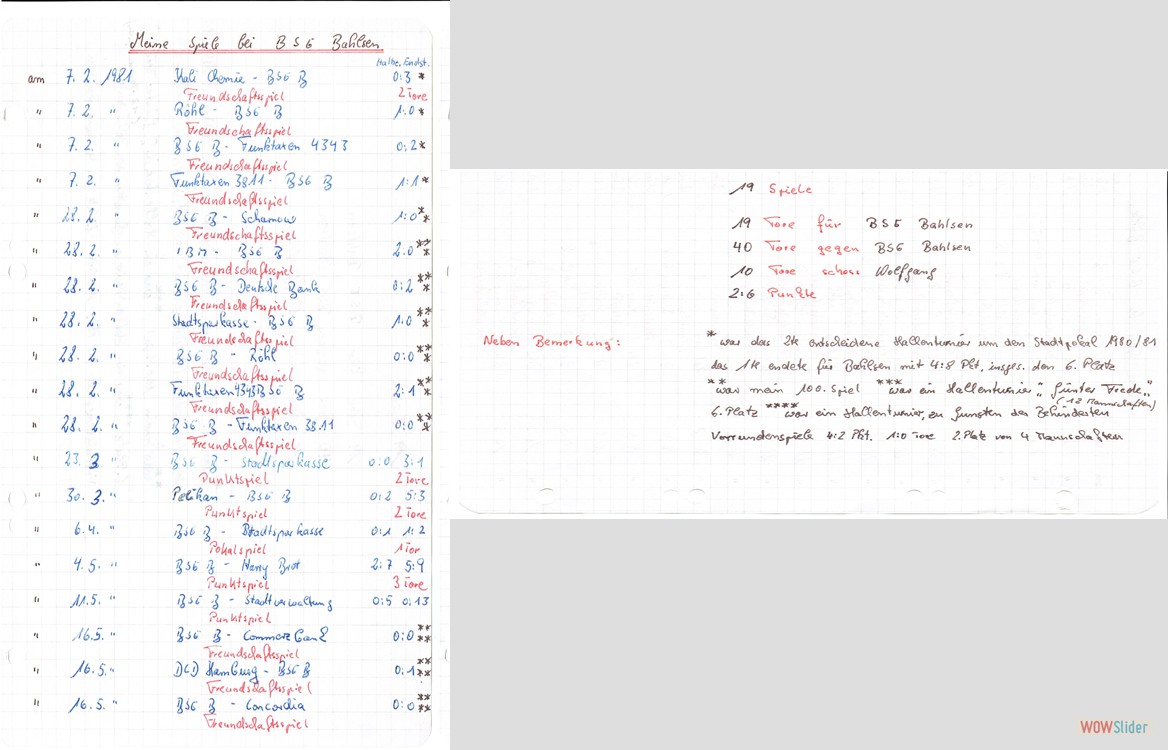 Meine Spiele bei BSG Bahlsen
Halbz. Endst.
am 7. 2. 1981 Kali Chemie - BSG B 0:3 *
Freundschaftsspiel 2 Tore
" 7.2. " Röhl - BSG B 1:0 *
Freundschaftsspiel
" 7.2. " BSG B - Funktaxen 4343 0:2 *
Freundschaftsspiel
" 7.2. " Funktaxen 3811 - BSG B 1:1 *
Freundschaftsspiel
" 28.2. " BSG B - Scharnow 1:0 **
Freundschaftsspiel
" 28.2. " IBM - BSG B 2:0 ***
Freundschaftsspiel
" 28.2. " BSG B - Deutsche Bank 0:2 ***
Freundschaftsspiel
" 28.2. " Stadtsparkasse - BSG B 1:0 ***
Freundschaftsspiel
" 28.2. " BSG B - Röhl 0:0 ***
Freundschaftsspiel
" 28.2. " Funktaxen 4343 BSG B 2:1 ***
Freundschaftsspiel
" 28.2. " BSG B - Funktaxen 3811 0:0 ***
Freundschaftsspiel
" 23.3 " BSG B - Stadtsparkasse 0:0 3:1
Punktspiel 2 Tore
" 30.3. " Pelikan - BSG B 0:2 5:3
Punktspiel 2 Tore
" 6.4. " BSG B - Stadtsparkasse 0:1 1:2
Pokalspiel 1 Tor
" 4.5. " BSG B - Harry Brot 2:7 5:9
Punktspiel 3 Tore
" 11.5. " BSG B - Stadtverwaltung 0:5 0:13
Punktspiel
" 16.5. " BSG B - Commerzbank 0:0 ****
Freundschaftsspiel
" 16.5. " DCD Hamburg - BSG B 0:1 ****
Freundschaftsspiel
" 16.5. " BSG B - Concordia 0:0 ****
Freundschaftsspiel
19 Spiele
19 Tore für BSG Bahlsen
40 Tore gegen BSG Bahlsen
10 Tore schoss Wolfgang
2:6 Punkte
Neben Bemerkung: * war das 2te entscheidene Hallenturnier um den Stadtpokal 1980/81
das 1te endete für Bahlsen mit 4:8 Pkt. insges. den 6. Platz
** war mein 100. Spiel *** war ein Hallenturnier „Günter Friede"
(12 Mannschaften)
6. Platz **** war ein Hallenturnier zu Gunsten der Behinderten
Vorrundenspiele 4:2 Pkt. 1:0 Tore 2. Platz von 4 Mannschaften
WOWSlider